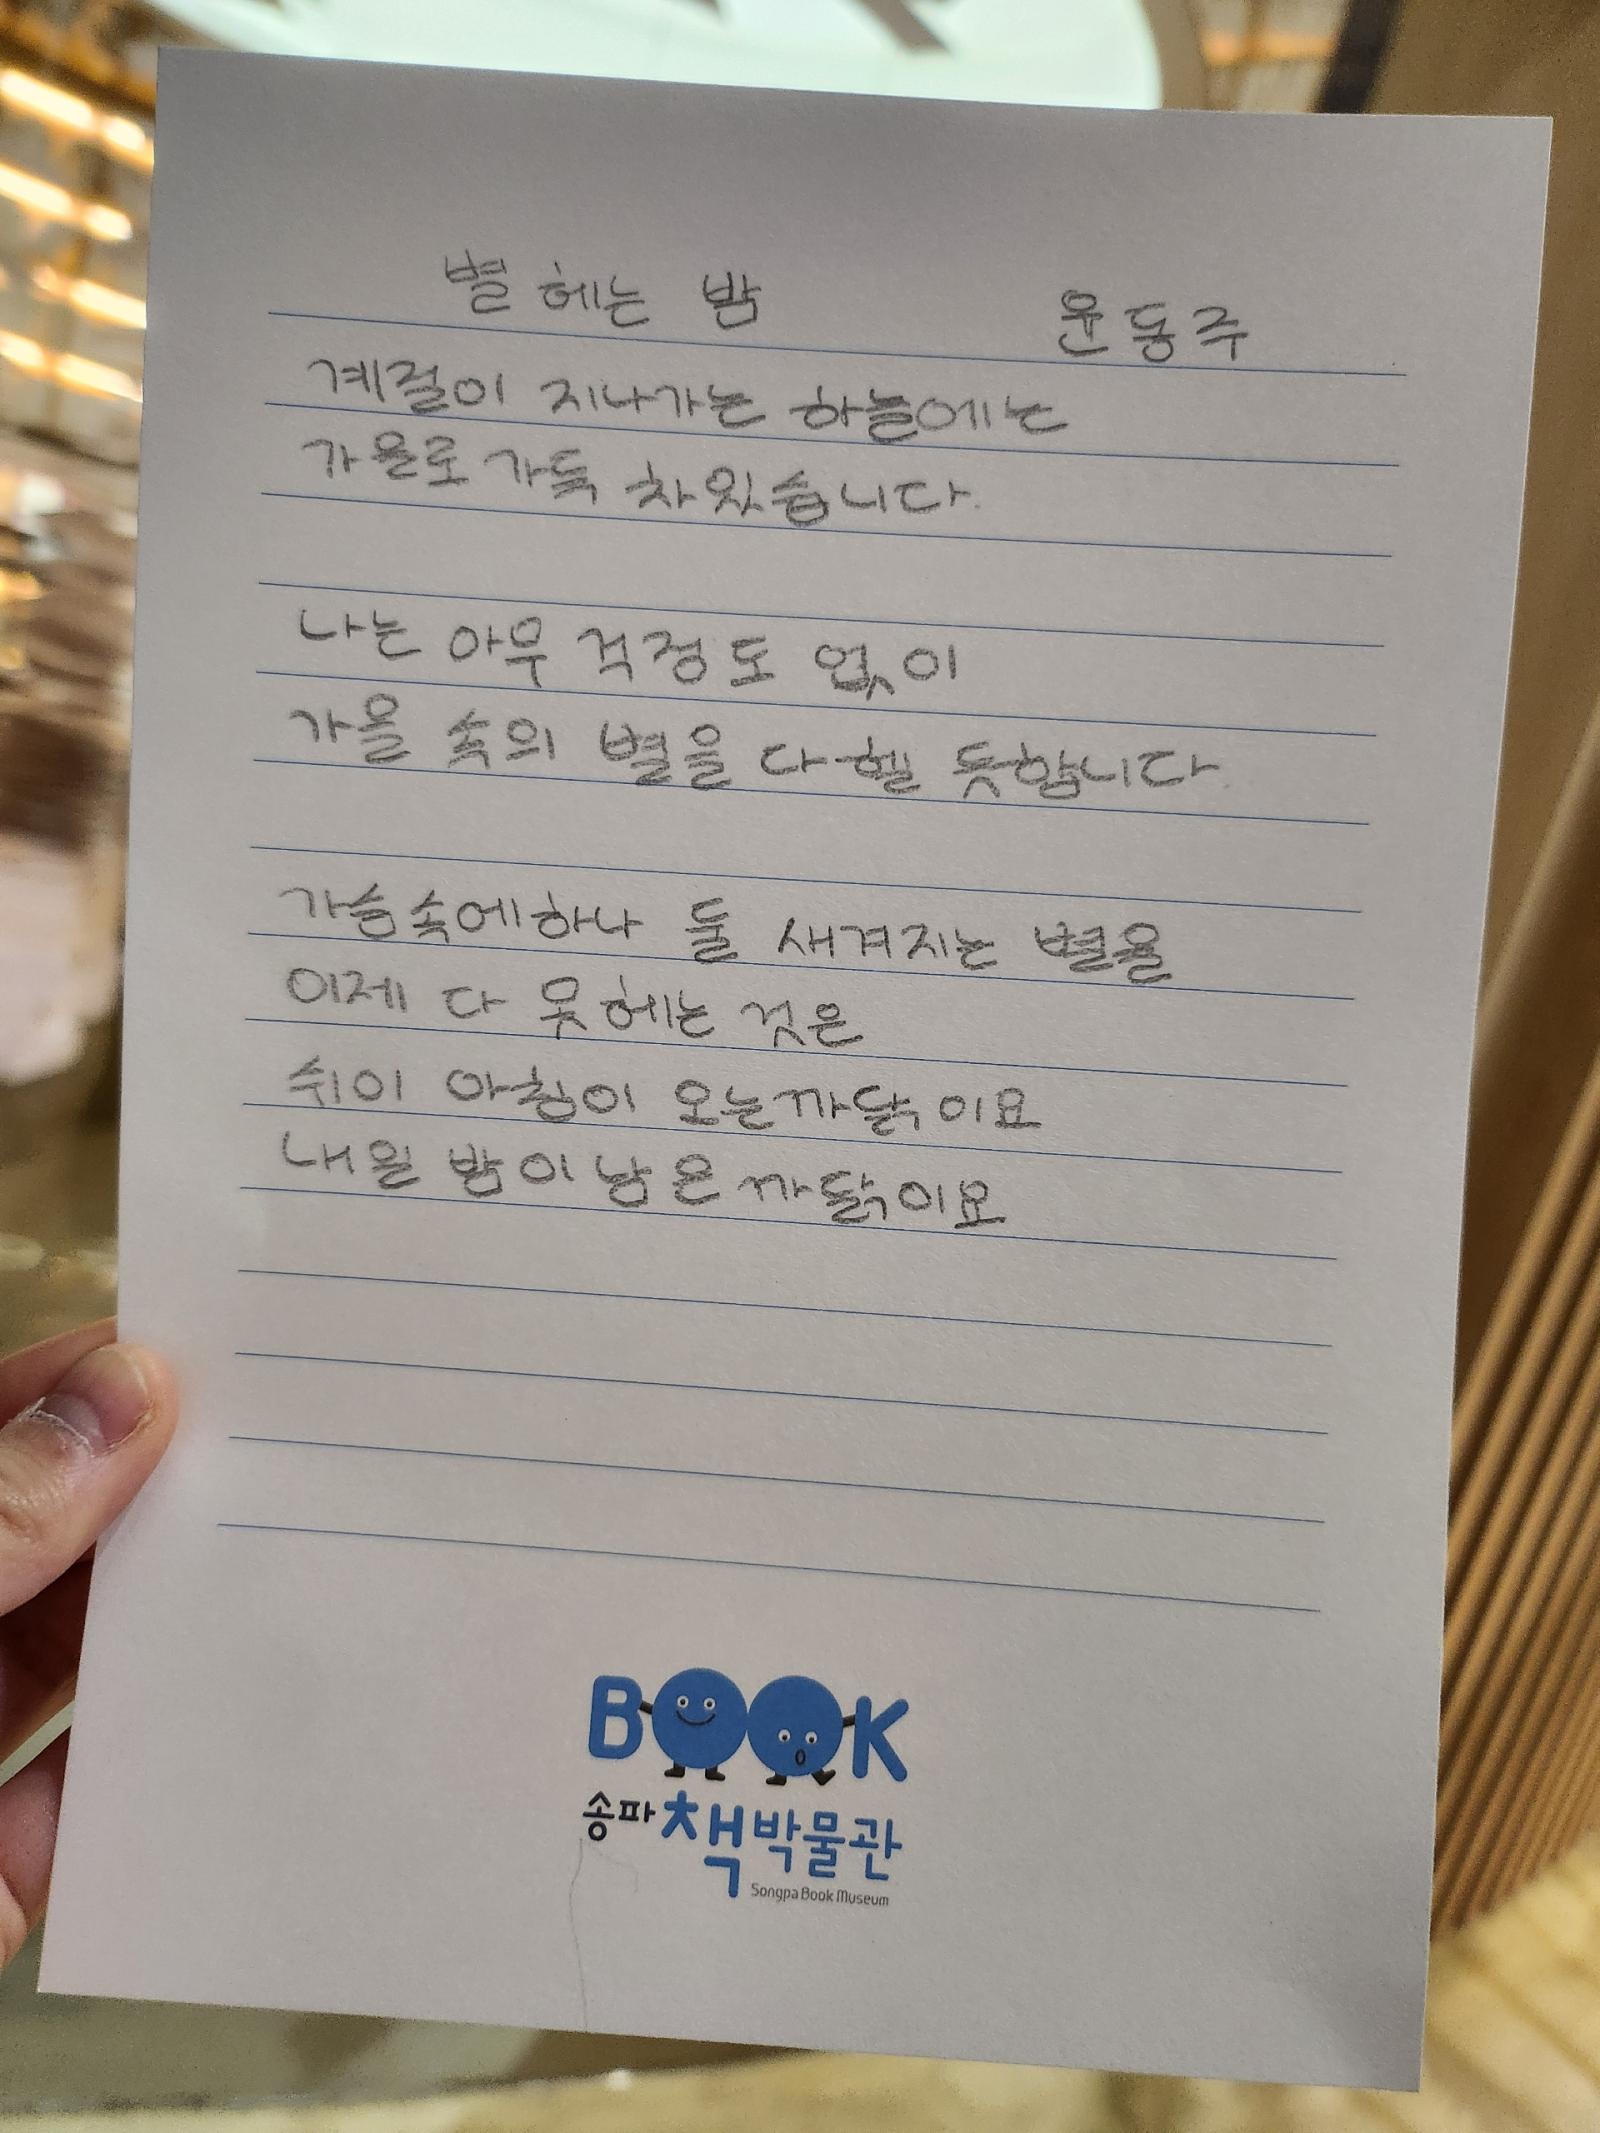 별 헤는 밤 윤동주
계절이 지나가는 하늘에는
가을로 가득 차있습니다.
나는 아무 걱정도 없이
가을 속의 별을 다 헬 듯합니다.
가슴속에 하나 둘 새겨지는 별을
이제 다 못 헤는 것은
쉬이 아침이 오는 까닭이요
내일 밤이 남은 까닭이요
BOOK
송파책박물관
Songpa Book Museum